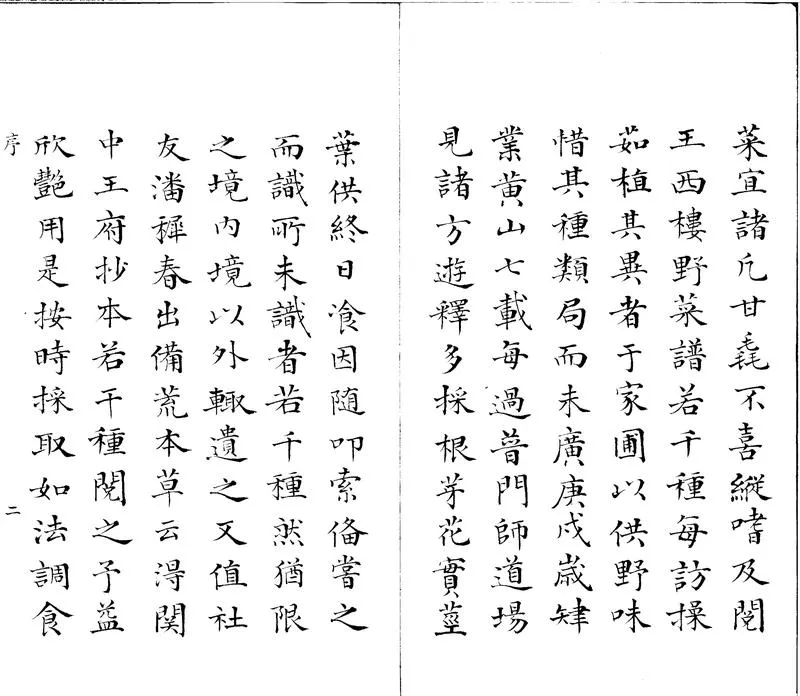 菜宜諸凢甘毳不喜縱嗜及閱
王西樓野菜譜若千種每訪操
茹植其異者于家圃以供野味
惜其種類局而未廣庚戍歲肄
業黃山七載每過普門師道場
見諸方遊釋多採根芽花實莖
葉供終日飡因随叩索俻嘗之
而識所未識者若千種然猶限
之境內境以外輙遺之又值社
友潘穉春出備荒本草云得関
中王府抄本若干種閱之予益
欣艷用是按時採取如法調食
序
二